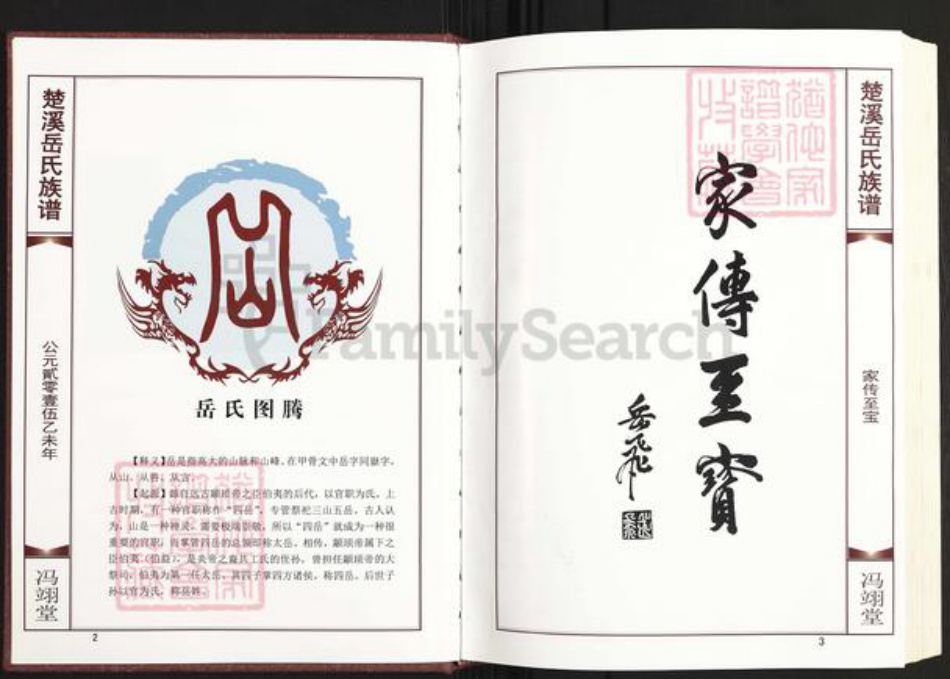 楚溪岳氏族谱
公元貳零壹伍乙未年
冯翊堂
岳氏图腾
【释义】岳是指高大的山脉和山峰。在甲骨文中岳字同嶽字，
从山、从
【起源】源自远古颛顼帝之臣伯夷的后代，以官职为氏。上
古时期，有一种官职称作“四岳”，专管祭祀三山五岳，古人认
为，山是一种神灵，需要极端崇敬，所以“四岳”就成为一种很
重要的官职，而掌管四岳的总领即称太岳。相传，颛顼帝属下之
臣伯夷（伯益），是炎帝之裔共工氏的侄孙，曾担任颛顼帝的大
祭司，伯夷为第一任太岳，其四子掌四方诸侯，称四岳。后世子
孙以官为氏，称岳姓。
2
FamilySearch
家傳至寶
岳飞
楚溪岳氏族谱
家传至宝
冯翊堂
3